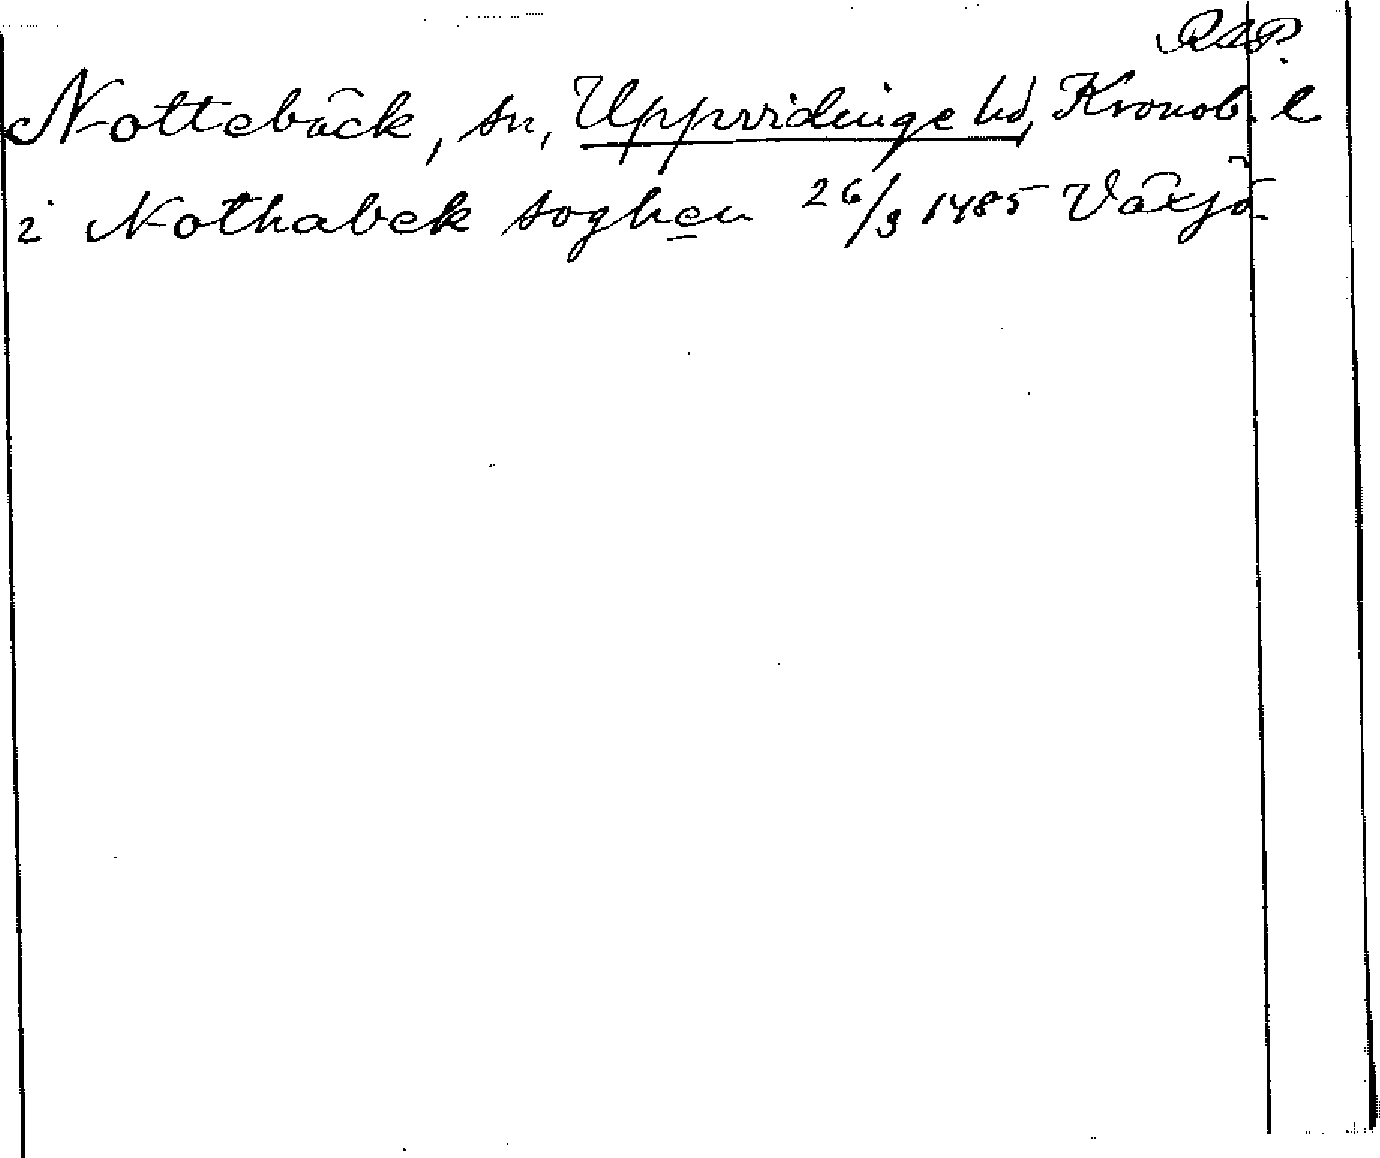 RAP.
Nottebäck, sn, Uppvidinge hd, Kronob. l
i Nothabek soghen 26/9 1485 Växjö